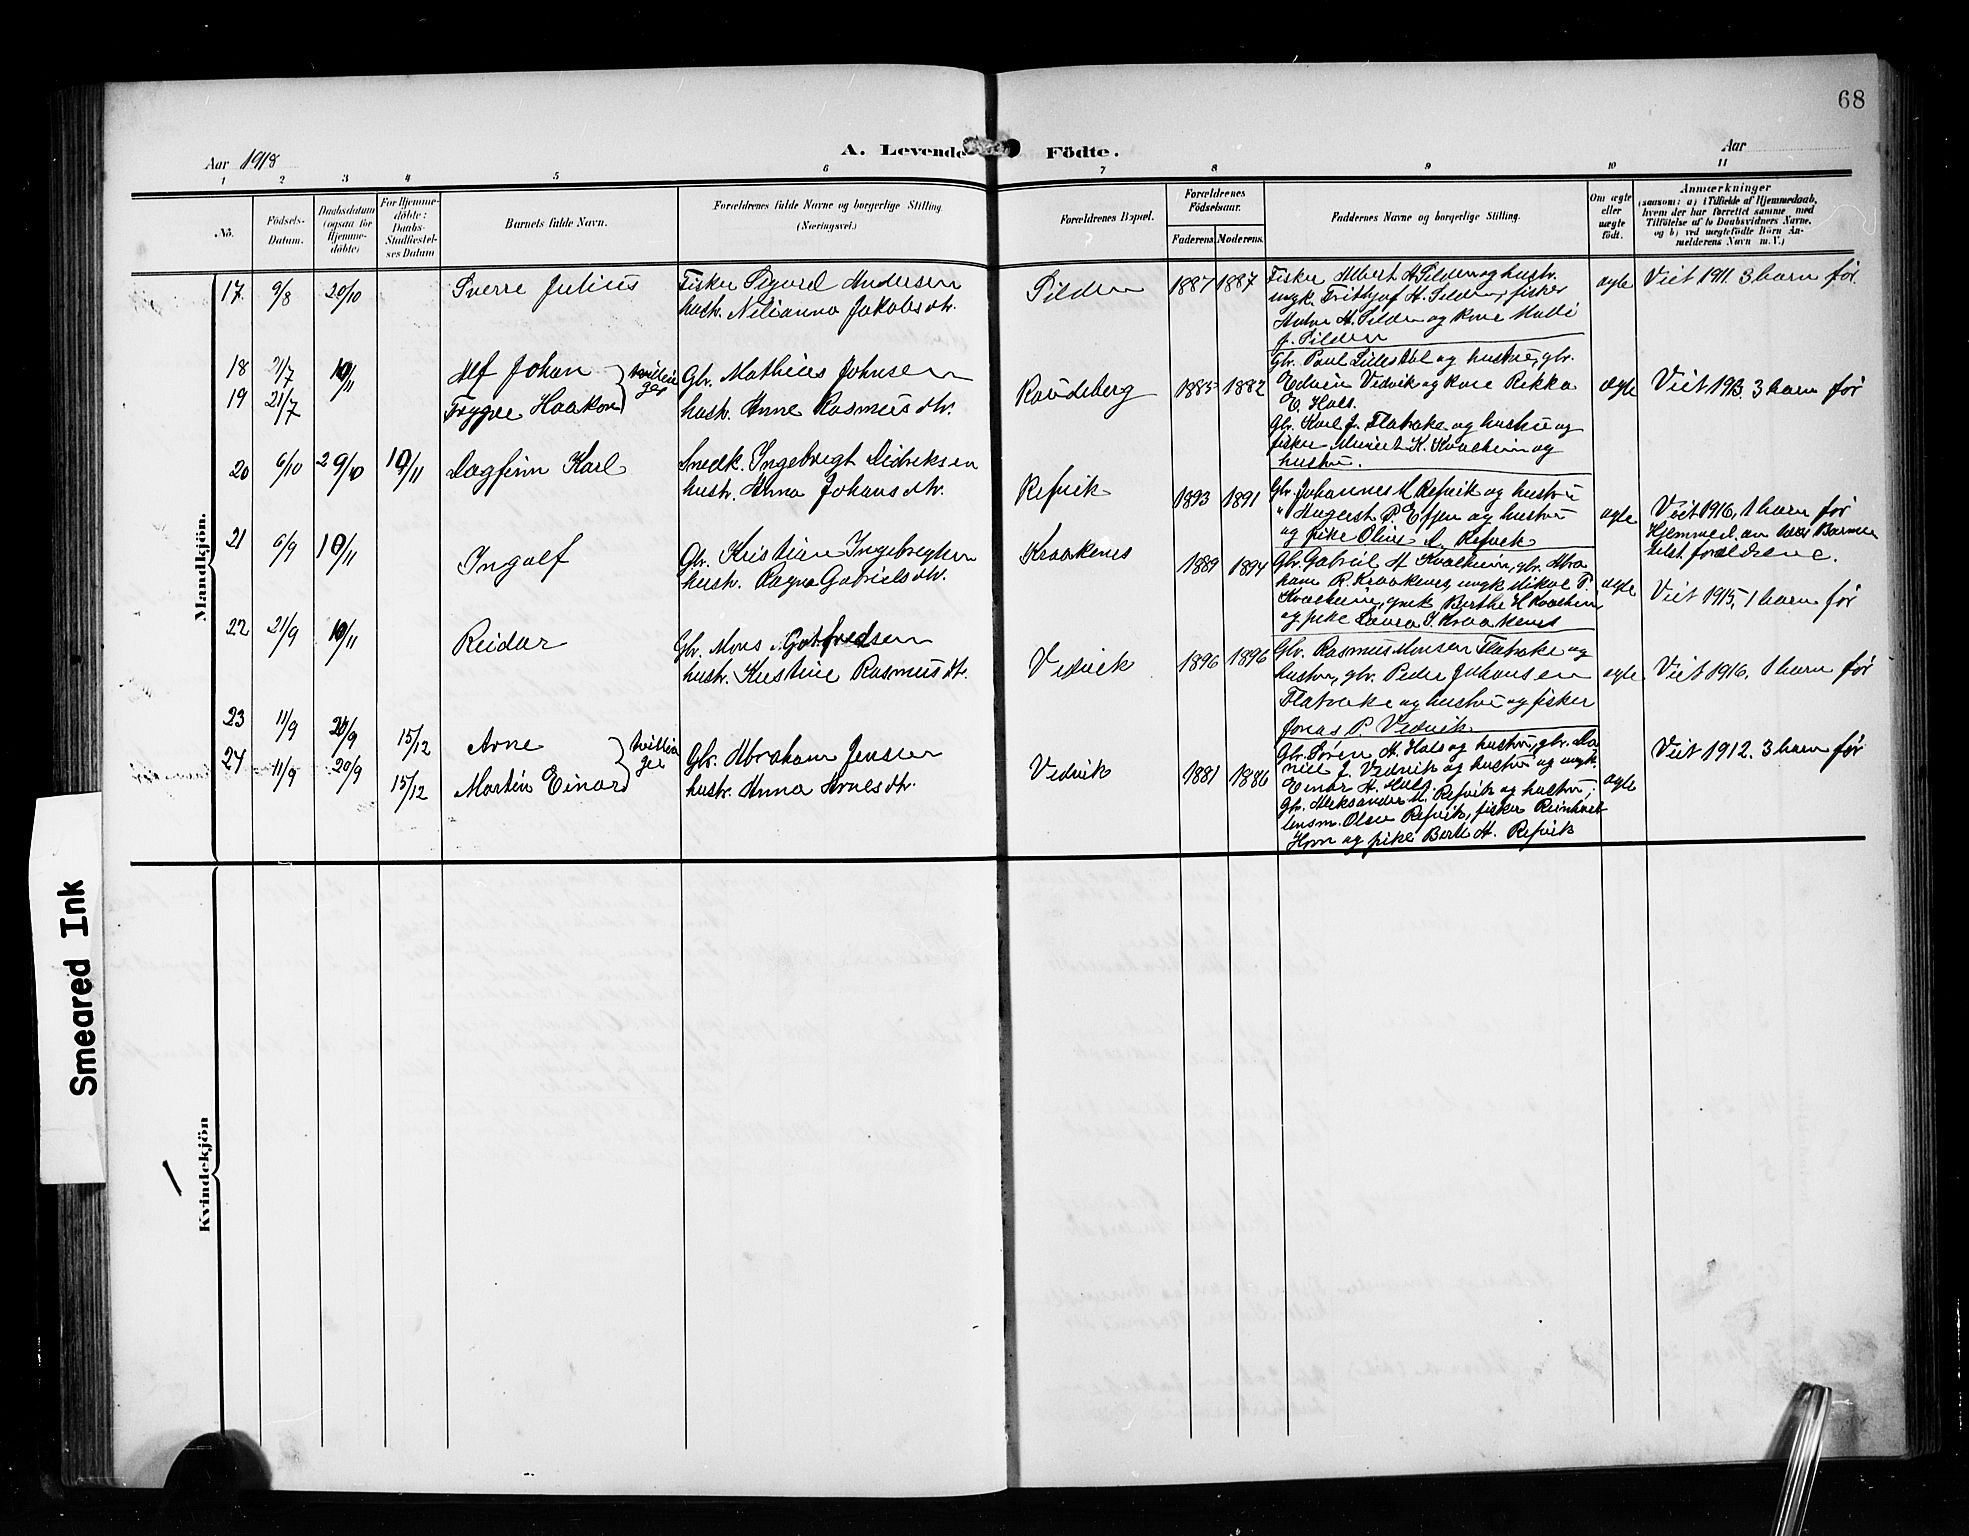 68
A. Levende Födte.
Aar 1918
Aar
1 2 3 4 5 6 7 8 9 10 11
No.
Födsels-
Datum.
Daabsdatum
(ogsaa for
Hjemme-
döbte)
For Hjemme-
döbte:
Daabs-
Stadfæstel-
ses Datum
Barnets fulde Navn.
Forældrenes fulde Navne og borgerlige Stilling.
(Næringsvei.)
Forældrenes Bopæl.
Forældrenes
Födselsaar.
Faderens. Moderens.
Faddernes Navne og borgerlige Stilling.
Om ægte
eller
uægte
födt.
Anmærkninger
(saasom: a) i Tilfælde af Hjemmedaab,
hvem der har forrettet samme med
Tilföielse af to Daabsvidners Navne,
og b) ved uægtefödte Börn An-
melderens Navn m. V.)
Mandkjön.
17 9/8 20/10
Sverre Julius
Fisker Sigurd Andersen
hustr. Nilianna Jakobsdtr.
Silden
1887 1887
Fisker Albert A. Silden og hustr.
ungk. Frithjof H. Silden, fisker
Anton H. Silden og kone Malli
J. Silden
ægte
Viet 1911. 3 barn før
18 21/7 10/11
Alf Johan
19 21/7
Trygve Haakon
tvillin
ger
Gbr. Mathias Johnsen
hustr. Anne Rasmusdtr.
Raudeberg
1885 1882
Gbr. Paul Lillestøl og hustru, gbr.
Edvin Vedvik og kone Rikka
E. Hals.
Gbr. Karl J. Flatrake og hustru og
fisker Meriet K. Kvalheim og
hustru.
ægte
Viet 1913. 3 barn før
20 6/10 29/10 10/11
Dagfinn Karl
Snedk. Ingebrigt Didriksen
hustr. Anna Johansdtr.
Refvik
1893 1891
Gbr. Johannes M Refvik og hustru
" August P. Etjen og hustru
og pike Oline A. Refvik
ægte
Viet 1916, 1 barn før
Hjemmed. av
tilst. forældrene.
21 6/9 10/11
Ingolf
Gbr. Kristian Ingebregtsen
hustr. Ragna Gabrielsdtr.
Kraakenes
1889 1894
Gbr. Gabriel A Kvalheim, gbr. Abra
ham R. Kraakenes, ungk Mikal P.
Kvalheim, pike Berthe H Kvalheim
og pike Laura S. Kraakenes
ægte
Viet 1915, 1 barn før
22 21/9 10/11
Reidar
Gbr. Mons Gotfredsen
hustr. Kristine Rasmusdtr.
Vedvik
1896 1896
Gbr. Rasmus Monsen Flatrake og
hustru, gbr. Peder Johansen
Flatrake og hustru og fisker
Jonas P. Vedvik
ægte
Viet 1916. 1 barn før
23 11/9 20/9 15/12
Arne
24 11/9 20/9 15/12
Martin Einar
tvillin
ger
Gbr. Abraham Jensen
hustr. Anna Arnesdtr.
Vedvik
1881 1886
Gbr. Søren A. Hals og hustru, gbr. Da
niel J. Vedvik og hustru og ungk.
Einar H. Hals.
Gbr. Aleksander M. Refvik og hustru,
lensm. Olsen Refvik, fisker Reinhart
Horn og pike Berte A. Refvik
ægte
Viet 1912. 3 barn før
Kvindekjön
Smeared Ink